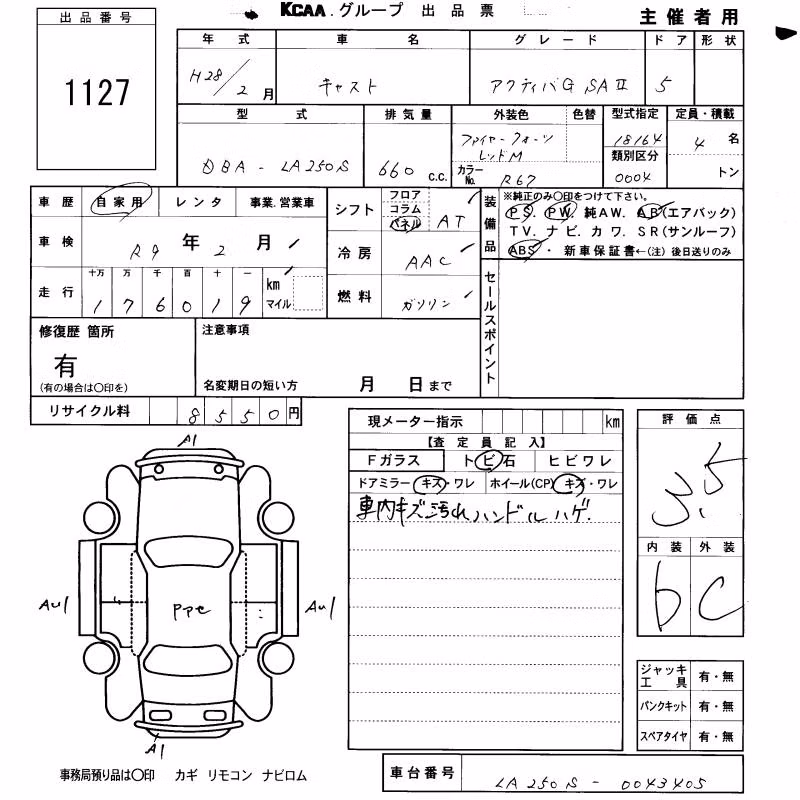 KCAA.グループ 出品票
主催者用
出品番号
1127
年式 車名 グレード ドア 形状
H28/2月 キャスト アクティバG SAⅡ 5
型式 排気量 外装色 色替 型式指定 定員・積載
DBA-LA250S 660 c.c. ファイヤークォーツ レッドM 18164 4 名
類別区分
カラーNo. R67 0004 トン
車歴 自家用 レンタ 事業.営業車
車検 R9年2月
走行 十万 万 千 百 十 一 km マイル
176019
シフト フロア コラム パネル AT
冷房 AAC
燃料 ガソリン
装備品
※純正のみ〇印をつけて下さい。
PS. PW. 純AW. AB(エアバック)
TV. ナビ. カワ. SR(サンルーフ)
ABS・ 新車保証書←(注) 後日送りのみ
セールスポイント
修復歴 箇所
有
(有の場合は〇印を)
注意事項
名変期日の短い方 月 日まで
リサイクル料 8550円
現メーター指示 km
【査定員記入】
Fガラス トビ石 ヒビワレ
ドアミラー キズ・ワレ ホイール(CP) キズ・ワレ
車内キズ汚れハンドルハゲ.
評価点
3.5
内装 外装
b C
A1
AU1 ppc AU1
A1
ジャッキ 工具 有・無
パンクキット 有・無
スペアタイヤ 有・無
事務局預り品は〇印 カギ リモコン ナビロム
車台番号 LA250S-0043405